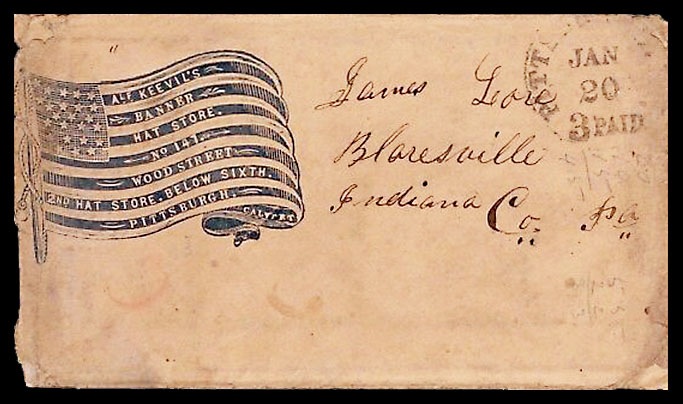 ALF KEEVIL'S
BANNER
HAT STORE.
No 141.
WOOD STREET
2ND HAT STORE. BELOW SIXTH.
PITTSBURGH.
CALVERT
James Lore
Blaresville
Indiana Co. Pa
PITT
JAN
20
3 PAID